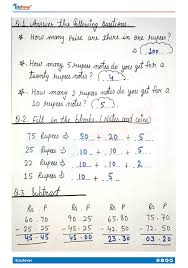 Q.1. Answer the following questions.
* How many paise are there in one rupee?
⇒ 100
* How many 5 rupees notes do you get for a
twenty rupees notes? 4
* How many 2 rupees notes do you get for a
10 rupees notes? 5
Q.2. Fill in the blanks (Notes and coins)
75 Rupees ⇒ 50 + 20 + 5
25 Rupees ⇒ 10 + 10 + 5
22 Rupees ⇒ 10 + 10 + 2
15 Rupees ⇒ 10 + 5
Q.3. Subtract
Rs P Rs P Rs P Rs P
60 . 70 90 . 25 65 . 80 75 . 70
- 25 . 25 - 45 . 25 - 42 . 50 - 52 . 50
45 . 45 45 . 00 23 . 30 23 . 20